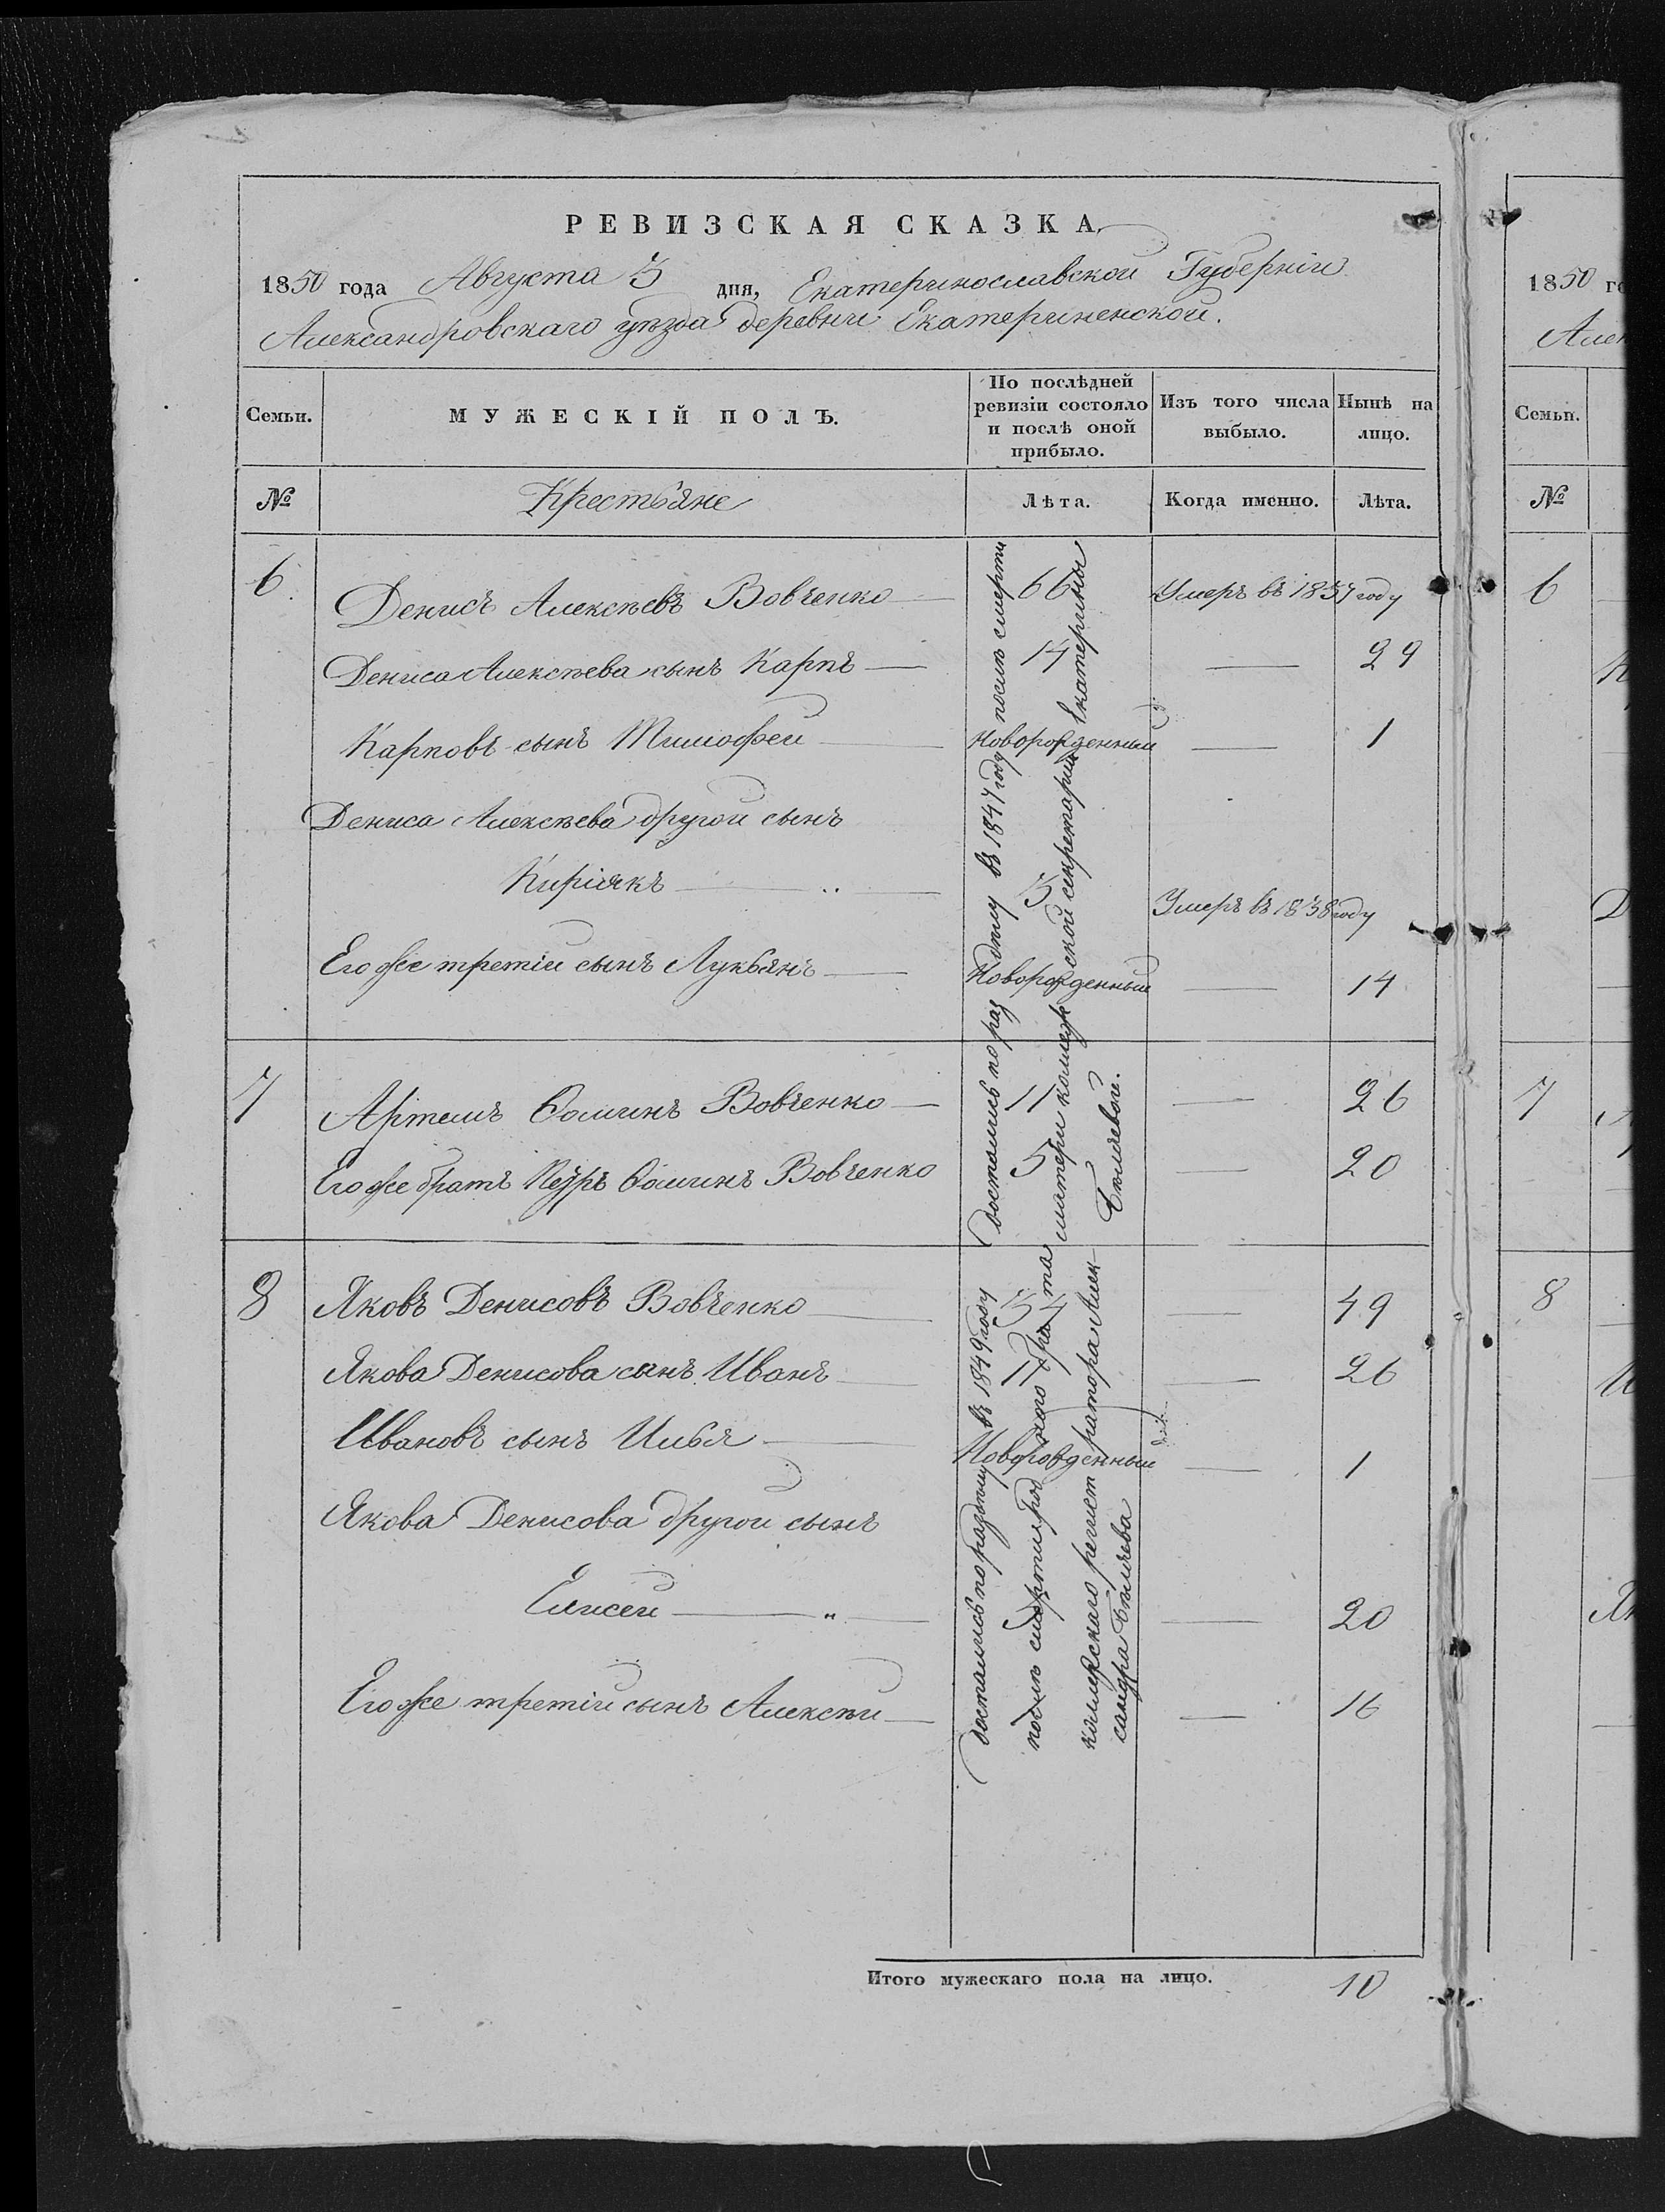 РЕВИЗСКАЯ СКАЗКА.
1850 года Августа 3 дня, Екатеринославской Губерніи
Александровскаго уѣзда деревни Екатериненской.
Семьи.
МУЖЕСКІЙ ПОЛЪ.
По послѣдней ревизіи состояло и послѣ оной прибыло.
Изъ того числа выбыло.
Нынѣ на лицо.
№
Крестьяне
Лѣта.
Когда именно.
Лѣта.
6. Денисъ Алексѣевъ Вовченко — 66 Умеръ въ 1837 году
Дениса Алексѣева сынъ Карпъ — 14 — 29
Карповъ сынъ Тимофей — Новорожденный — 1
Дениса Алексѣева другой сынъ
Киріякъ — 3 Умеръ въ 1838 году
Его же третій сынъ Лукьянъ — Новорожденный — 14
достались по раздѣлу въ 1847 году послѣ смерти
матери коллежской секретарши Екатерины
Бѣличевой.
7 Артемъ Ѳоминъ Вовченко — 11 — 26
Его же братъ Петръ Ѳоминъ Вовченко 5 — 20
8 Яковъ Денисовъ Вовченко — 34 — 49
Якова Денисова сынъ Иванъ — 11 — 26
Ивановъ сынъ Илья — Новорожденный — 1
Якова Денисова другой сынъ
Елисей — " — 5 — 20
Его же третій сынъ Алексѣй — 1 — 16
достались по раздѣлу въ 1849 году
послѣ смерти роднаго брата
коллежскаго регистратора Алек-
сандра Бѣличева
Итого мужескаго пола на лицо. 10
1850 го
Алек
Семьи.
№
6
К
Д
7
8
И
Як